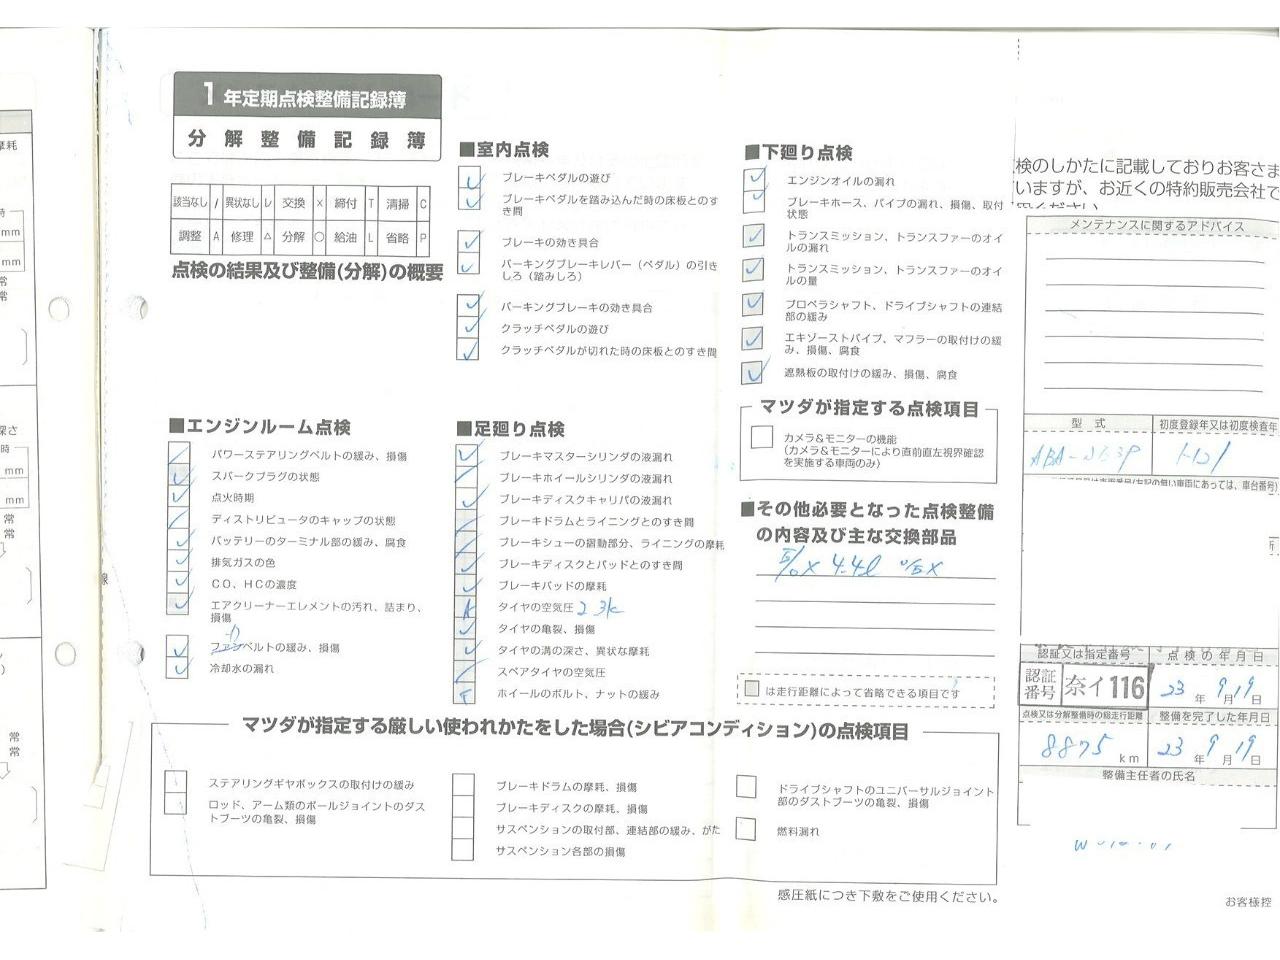 1 年定期点検整備記録簿
分解整備記録簿
該当なし / 異状なし レ 交換 × 締付 T 清掃 C
調整 A 修理 △ 分解 ○ 給油 L 省略 P
点検の結果及び整備(分解)の概要
■エンジンルーム点検
パワーステアリングベルトの緩み、損傷
スパークプラグの状態
点火時期
ディストリビュータのキャップの状態
バッテリーのターミナル部の緩み、腐食
排気ガスの色
CO、HCの濃度
エアクリーナーエレメントの汚れ、詰まり、
損傷
ファンベルトの緩み、損傷
冷却水の漏れ
■室内点検
ブレーキペダルの遊び
ブレーキペダルを踏み込んだ時の床板とのす
き間
ブレーキの効き具合
パーキングブレーキレバー(ペダル)の引き
しろ(踏みしろ)
パーキングブレーキの効き具合
クラッチペダルの遊び
クラッチペダルが切れた時の床板とのすき間
■足廻り点検
ブレーキマスターシリンダの液漏れ
ブレーキホイールシリンダの液漏れ
ブレーキディスクキャリパの液漏れ
ブレーキドラムとライニングとのすき間
ブレーキシューの摺動部分、ライニングの摩耗
ブレーキディスクとパッドとのすき間
ブレーキパッドの摩耗
タイヤの空気圧
タイヤの亀裂、損傷
タイヤの溝の深さ、異状な摩耗
スペアタイヤの空気圧
ホイールのボルト、ナットの緩み
■下廻り点検
エンジンオイルの漏れ
ブレーキホース、パイプの漏れ、損傷、取付
状態
トランスミッション、トランスファーのオイ
ルの漏れ
トランスミッション、トランスファーのオイ
ルの量
プロペラシャフト、ドライブシャフトの連結
部の緩み
エキゾーストパイプ、マフラーの取付けの緩
み、損傷、腐食
遮熱板の取付けの緩み、損傷、腐食
マツダが指定する点検項目
カメラ&モニターの機能
(カメラ&モニターにより直前直左視界確認
を実施する車両のみ)
■その他必要となった点検整備
の内容及び主な交換部品
4.4ℓ
は走行距離によって省略できる項目です
マツダが指定する厳しい使われかたをした場合(シビアコンディション)の点検項目
ステアリングギヤボックスの取付けの緩み
ロッド、アーム類のボールジョイントのダス
トブーツの亀裂、損傷
ブレーキドラムの摩耗、損傷
ブレーキディスクの摩耗、損傷
サスペンションの取付部、連結部の緩み、がた
サスペンション各部の損傷
ドライブシャフトのユニバーサルジョイント
部のダストブーツの亀裂、損傷
燃料漏れ
感圧紙につき下敷をご使用ください。
検のしかたに記載しておりお客さま
いますが、お近くの特約販売会社で
メンテナンスに関するアドバイス
型式 初度登録年又は初度検査年
認証又は指定番号 点検の年月日
認証番号 奈イ116 23年9月19日
点検又は分解整備時の総走行距離 整備を完了した年月日
8875 km 23年9月19日
整備主任者の氏名
お客様控